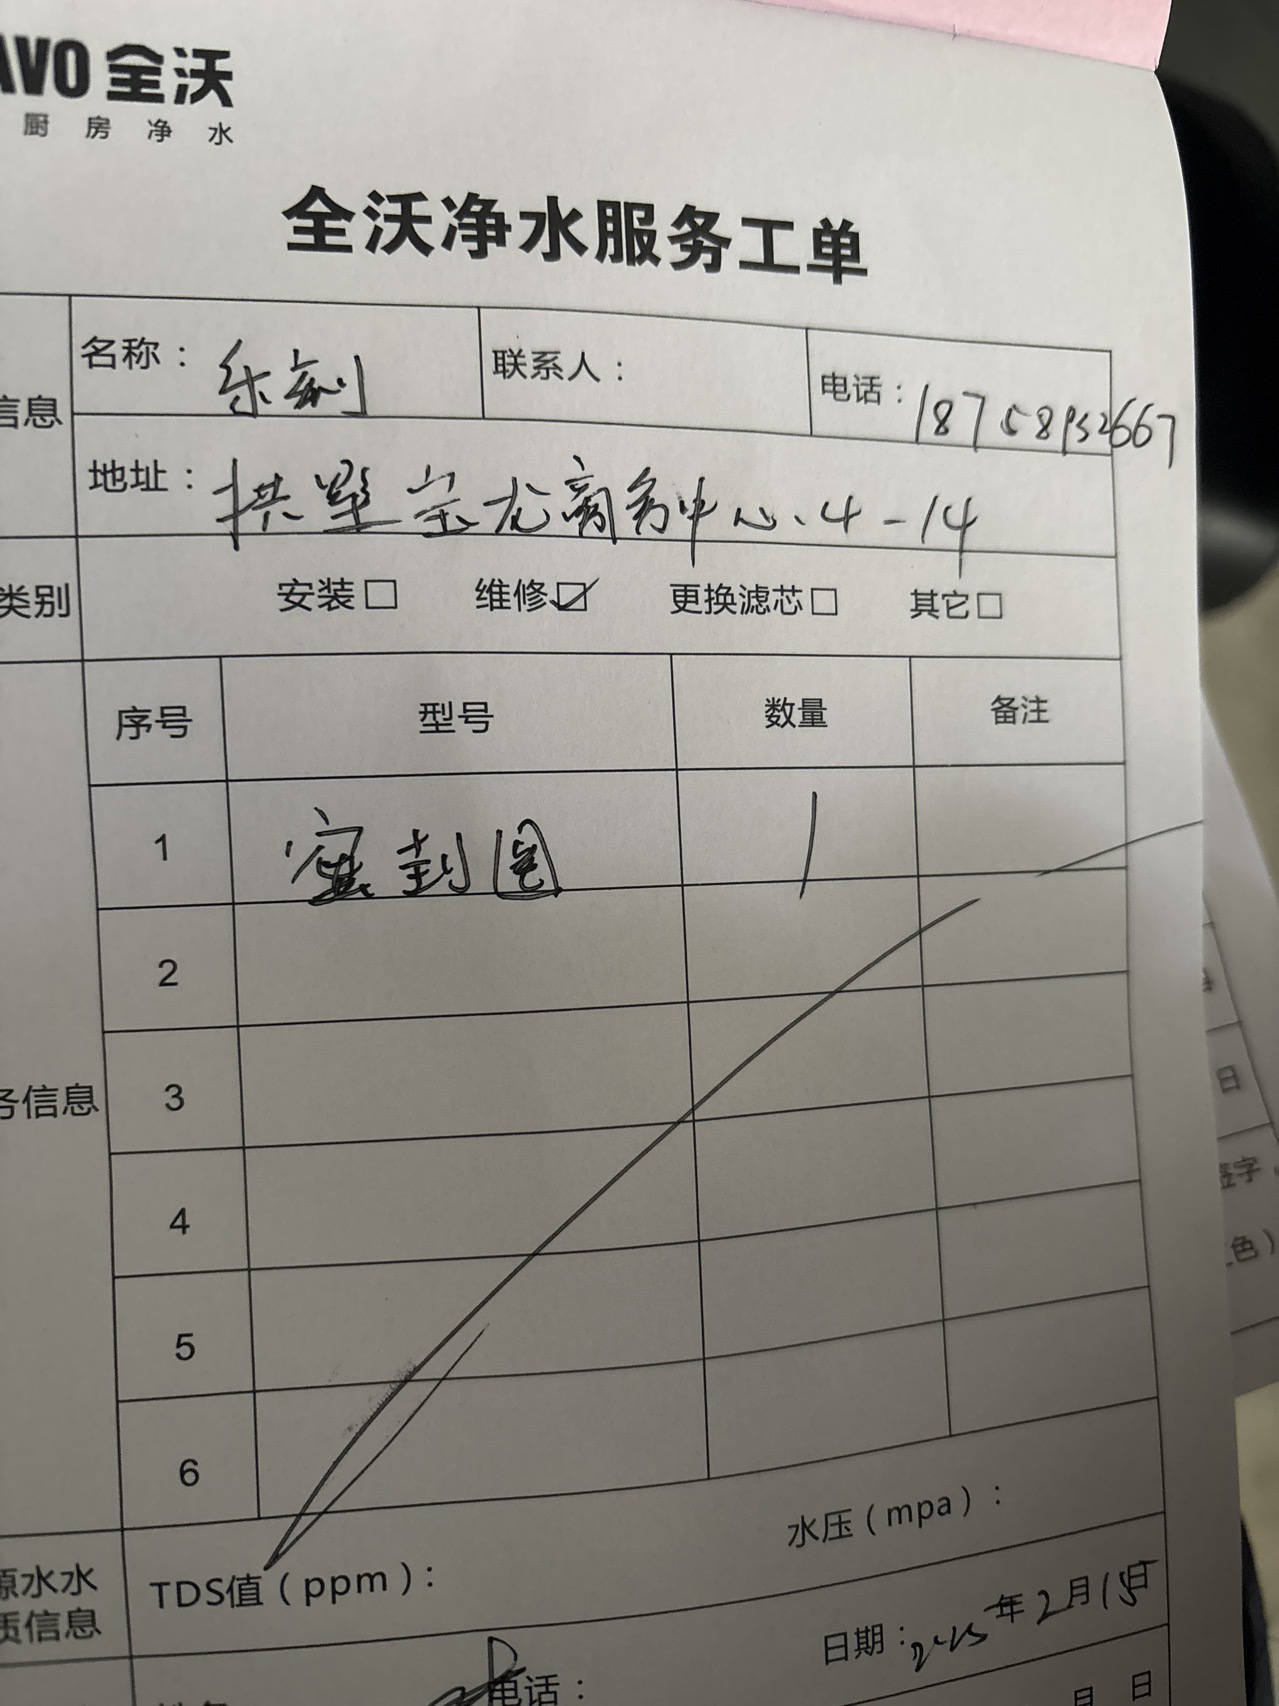 AVO 全沃
厨房净水
全沃净水服务工单
信息
名称： 乐刻
联系人：
电话： 18758952667
地址： 拱墅宝龙商务中心.4-14
类别
安装□ 维修☑ 更换滤芯□ 其它□
序号 型号 数量 备注
1 密封圈 1
2
3
务信息
4
5
6
源水水
质信息
TDS值（ppm）：
水压（mpa）：
日期：2025年2月15日
电话：
月 日
日
签字
色）